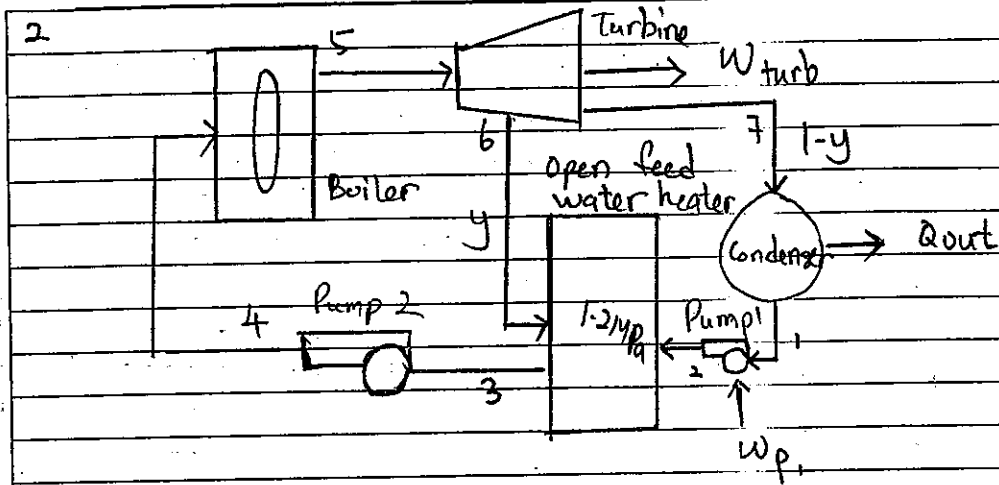 2
5
Turbine
W turb
6
7
1-y
Boiler
y
Open feed
water heater
Condenser
Qout
4
Pump 2
1.2MPa
Pump 1
2
1
3
Wp1